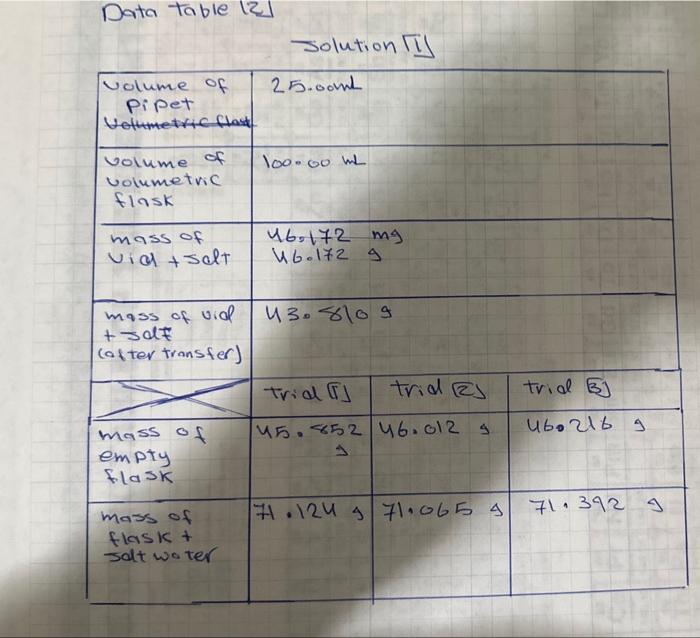 Data table [2]
Solution [1]
Volume of
Pipet
Volumetric flast
25.00mL
Volume of
volumetric
flask
100.00 mL
mass of
vial + salt
46.172 mg
46.172 g
mass of vial
+ salt
(after transfer)
43.810 g
trial [1]
trial [2]
trial [3]
mass of
empty
flask
45.852
g
46.012 g
46.216 g
mass of
flask +
salt water
71.124 g
71.065 g
71.392 g